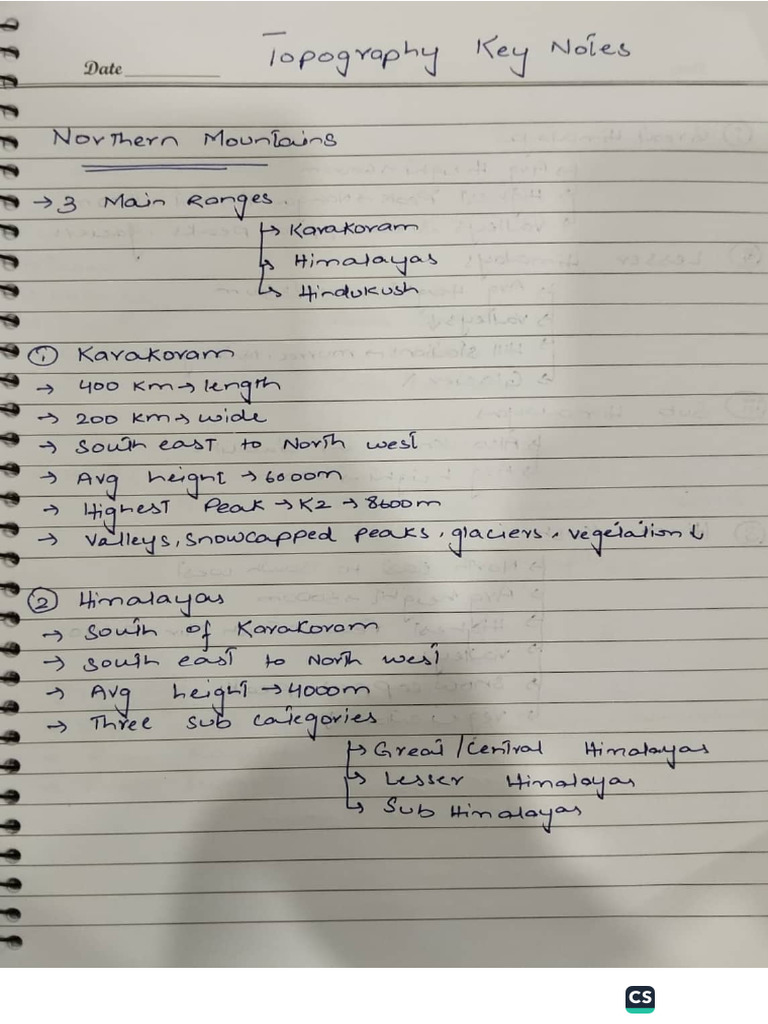 Topography Key Notes
Date
Northern Mountains
→ 3 Main Ranges.
↳ Karakoram
↳ Himalayas
↳ Hindukush
① Karakoram
→ 400 km → length
→ 200 km → wide
→ South east to North west
→ Avg height → 6000m
→ Highest Peak → K2 → 8600m
→ Valleys, snowcapped peaks, glaciers, vegetation ↓
② Himalayas
→ South of Karakoram
→ South east to North west
→ Avg height → 4000m
→ Three sub categories
↳ Great/Central Himalayas
↳ Lesser Himalayas
↳ Sub Himalayas
CS